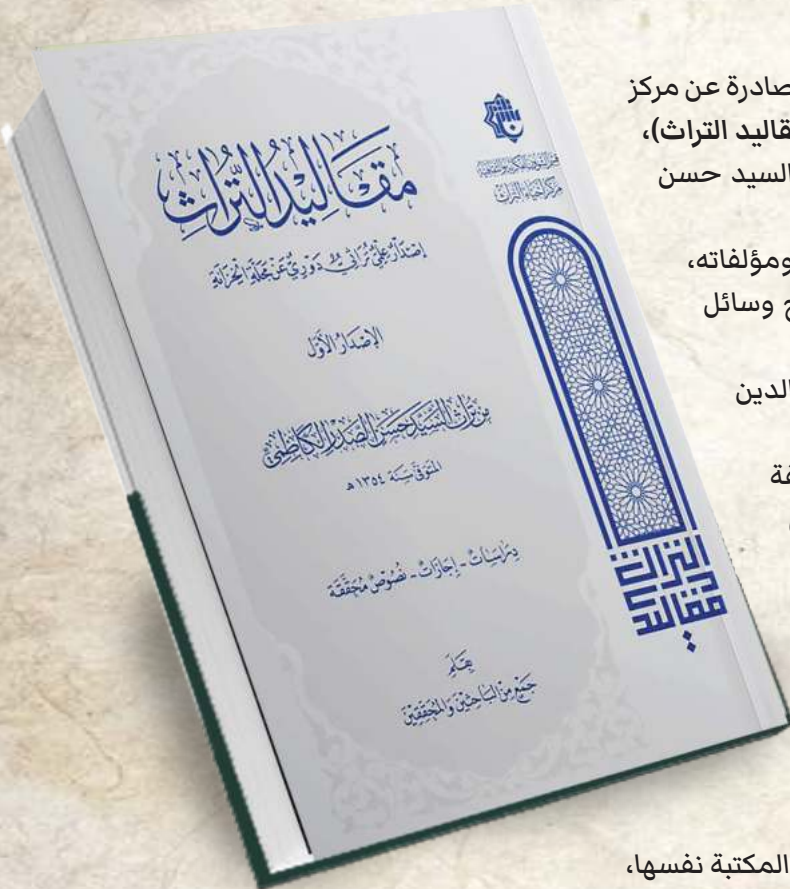 صادرة عن مركز
قاليد التراث)،
السيد حسن
ومؤلفاته،
ج وسائل
الدين
فة
المكتبة نفسها،
قسم الشؤون الفكرية والثقافية
مركز إحياء التراث
مَقَالِيدُ التُّرَاثِ
إِصْدَارٌ عِلْمِيٌّ تُرَاثِيٌّ دَوْرِيٌّ عَنْ مَجَلَّةِ الْخِزَانَةِ
الإِصْدَارُ الأَوَّل
مِنْ تُرَاثِ السَّيِّدِ حَسَنِ الصَّدْرِ الْكَاظِمِيِّ
المُتَوَفَّى سَنَةَ ١٣٥٤ هـ
دِرَاسَاتٌ - إِجَازَاتٌ - نُصُوصٌ مُحَقَّقَة
بِقَلَمِ
جَمْعٍ مِنَ البَاحِثِينَ وَالمُحَقِّقِينَ
مقاليد
التراث